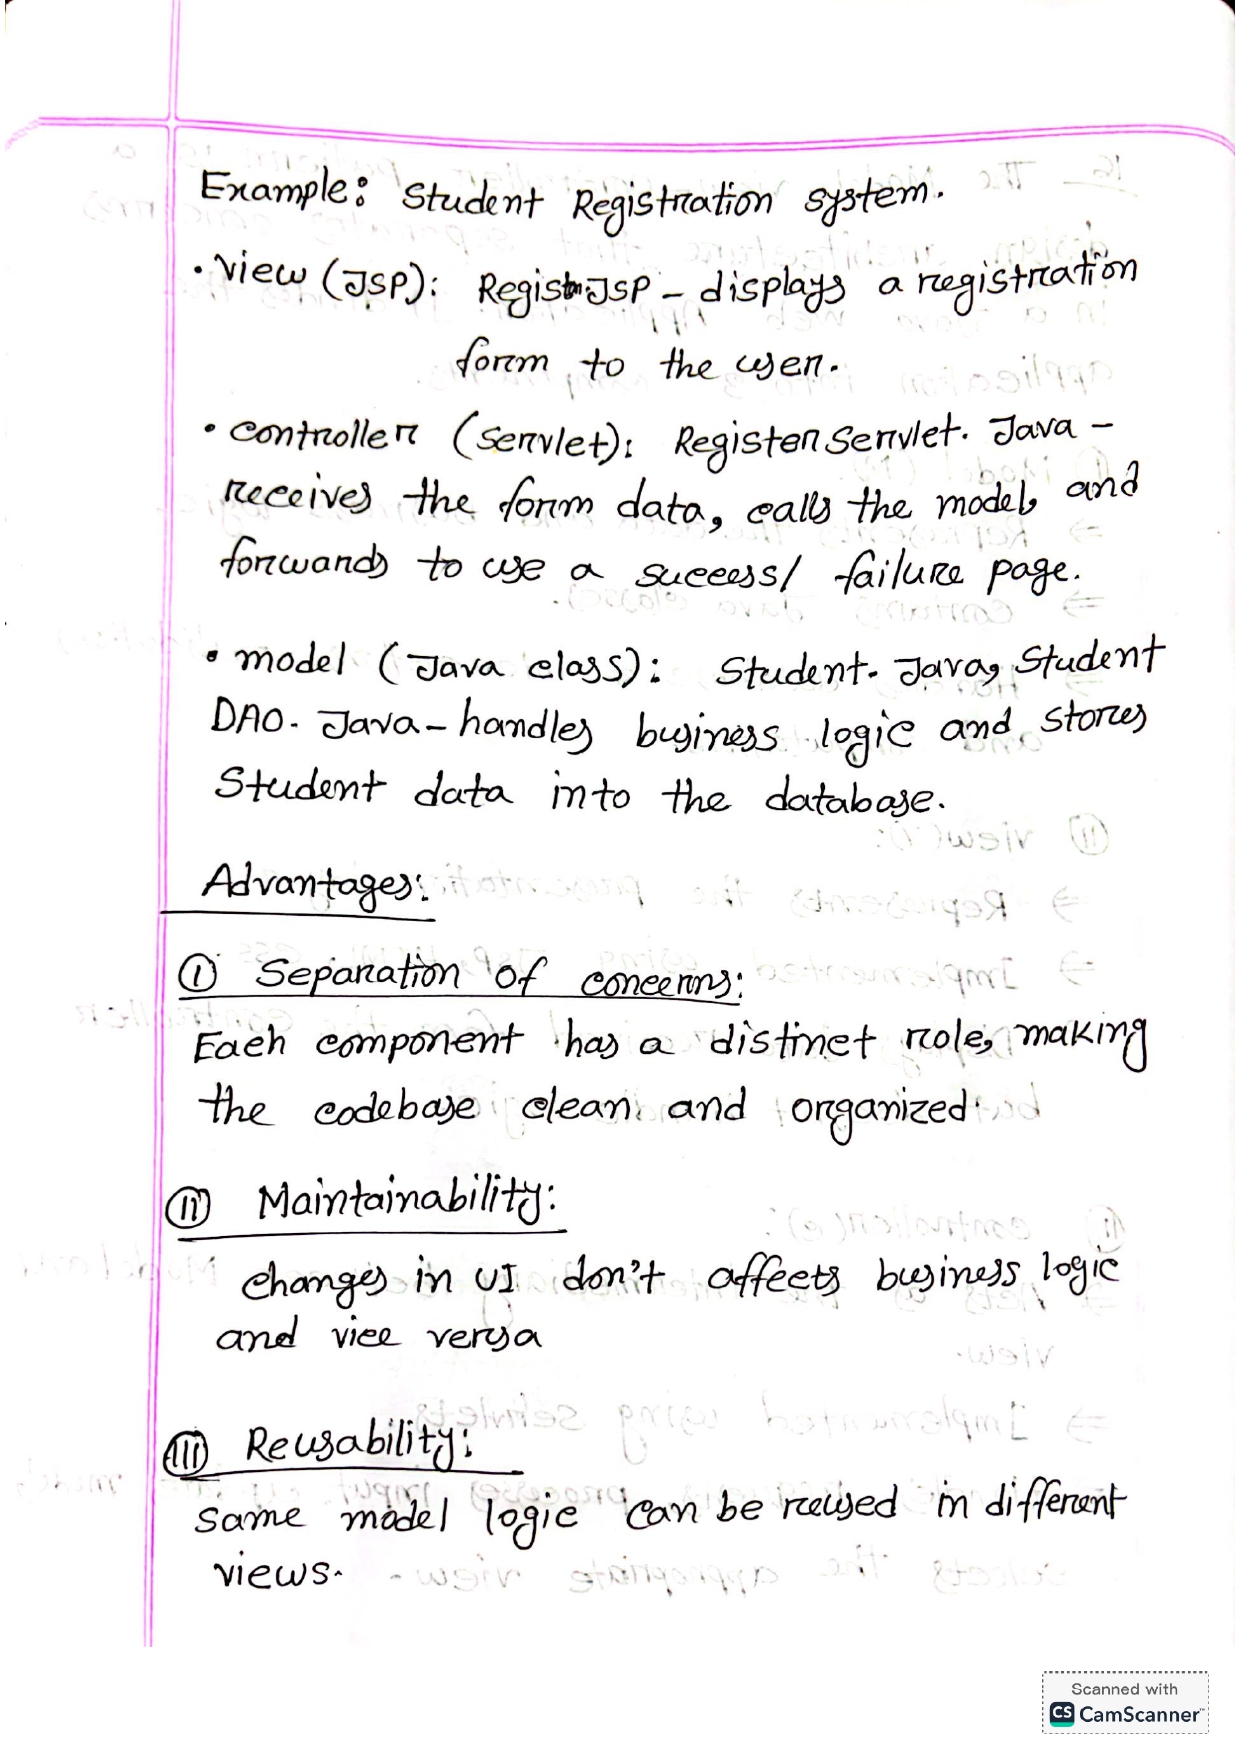 Example: Student Registration system.
• View (JSP): Regist.JSP – displays a registration
form to the user.
• controller (Servlet): Register Servlet. Java –
receives the form data, calls the model, and
forwards to use a success/ failure page.
• model (Java class): Student. Java, Student
DAO. Java – handles business logic and stores
Student data into the database.
Advantages:
I Separation of concerns:
Each component has a distinct role, making
the codebase clean and organized.
II Maintainability:
changes in UI don't affects business logic
and vice versa
III Reusability:
Same model logic can be reused in different
views.
Scanned with
CS CamScanner